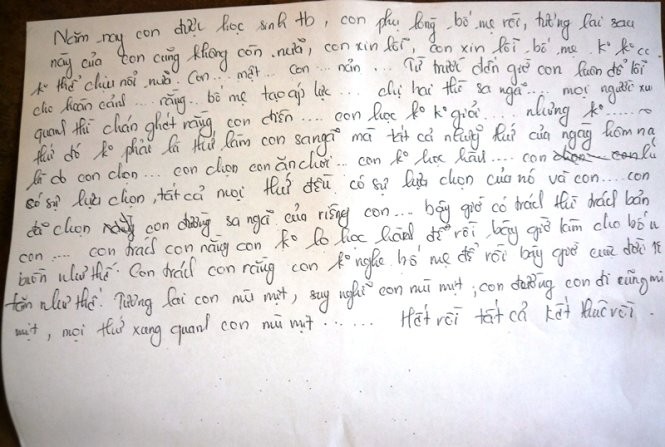 Năm nay con được học sinh tb, con phụ lòng bố mẹ rồi, tương lai sau
này của con cũng không còn nữa, con xin lỗi, con xin lỗi bố mẹ. k° k° cc
k° thể chịu nổi nữa. Con... mệt... con... nản... Từ trước đến giờ con luôn đổ lỗi
cho hoàn cảnh... rằng.. bố mẹ tạo áp lực.... chị hai thì sa ngã.... mọi người xu
quanh thì chán ghét rằng con điên.... con học k° k° giỏi.... nhưng k°......
thứ đó k° phải là thứ làm con sa ngã mà tất cả những thứ của ngày hôm na
là do con chọn... con chọn con ăn chơi.. con k° học hành.... con
có sự lựa chọn, tất cả mọi thứ đều có sự lựa chọn của nó và con.... con
đã chọn con đường sa ngã của riêng con... bây giờ có trách thì trách bản
con.... con trách con rằng con k° lo học hành để rồi bây giờ làm cho bố
buồn như thế. Con trách con rằng con k° nghe bố mẹ để rồi bây giờ cuộc đời
tàn như thế. Tương lai con mù mịt, suy nghĩ con mù mịt, con đường con đi cũng mù
mịt, mọi thứ xung quanh con mù mịt...... Hết rồi tất cả kết thúc rồi.